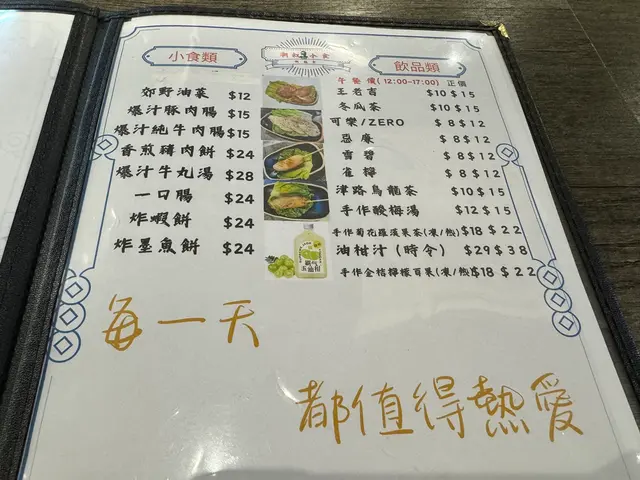 小食類
郊野油菜 $12
爆汁豚肉腸 $15
爆汁純牛肉腸 $15
香煎豬肉餅 $24
爆汁牛丸湯 $28
一口腸 $24
炸蝦餅 $24
炸墨魚餅 $24
飲品類
午餐價(12:00-17:00) 正價
王老吉 $10 $15
冬瓜茶 $10 $15
可樂/ZERO $8 $12
忌廉 $8 $12
雪碧 $8 $12
雀檸 $8 $12
津路烏龍茶 $10 $15
手作酸梅湯 $12 $15
手作菊花羅漢果茶(凍/熱) $18 $22
油柑汁(時令) $29 $38
手作金桔檸檬百果(凍/熱) $18 $22
玉油柑
每一天
都值得熱愛